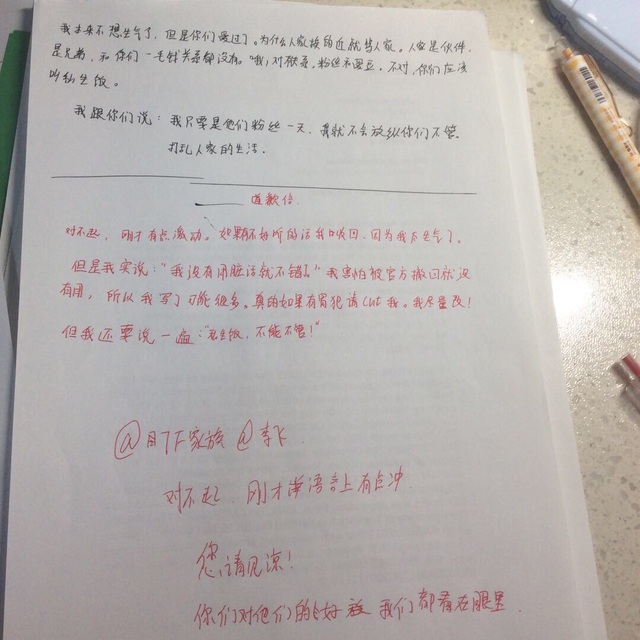 我本来不想生气了，但是你们过了。为什么人家挨的近就骂人家。人家是伙伴，
是兄弟，和你们一毛钱关系都没有。哦，对你系，粉丝和爱豆，不对，你们应该
叫私生饭。
我跟你们说：我只要是他们粉丝一天，我就不会放纵你们不管
打乱人家的生活。
道歉信
对不起，刚才有点激动。如果有不好听的话我收回，因为我太生气了。
但是我实说："我没有闭脏话就不错了。"我害怕被官方撤回就没
有用，所以我写了可能很多。真的如果有冒犯请 cue 我。我尽量改！
但我还要说一遍："私生饭，不能不管！"
@TF家族 @李飞
对不起，刚才言语上有点冲
您请见谅！
你们对他们的好 我们都看在眼里.